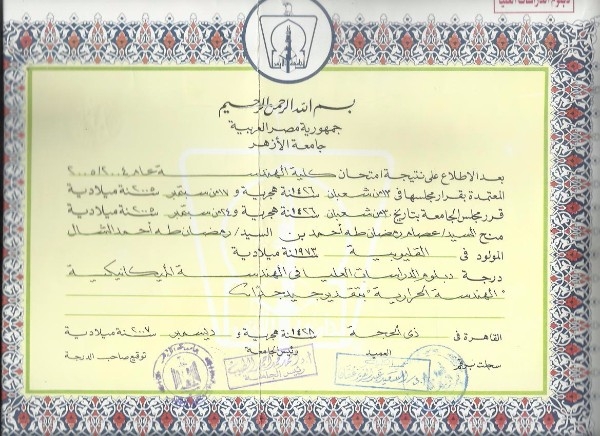 دبلوم الدراسات العليا
بسم الله الرحمن الرحيم
جمهورية مصر العربية
جامعة الأزهر
بعد الاطلاع على نتيجة امتحان كلية الهندسة عام ٢٠٠٤/٢٠٠٥
المعتمدة بقرار مجلسها في ١٣ من شعبان سنة ١٤٢٦ هجرية و ١٧ من سبتمبر سنة ٢٠٠٥ ميلادية
قرر مجلس الجامعة بتاريخ ٢٠ من شعبان سنة ١٤٢٦ هجرية و ٢٤ من سبتمبر سنة ٢٠٠٥ ميلادية
منح السيد/ عصام رمضان طه أحمد بن السيد/ رمضان طه أحمد الشال
المولود في القليوبية سنة ١٩٧٣ ميلادية
درجة دبلوم الدراسات العليا في الهندسة الميكانيكية
"الهندسة الحرارية" بتقدير جيد جدا
القاهرة في ذى الحجة سنة ١٤٢٨ هجرية و ديسمبر سنة ٢٠٠٧ ميلادية
سجلت برقم العميد رئيس الجامعة توقيع صاحب الدرجة